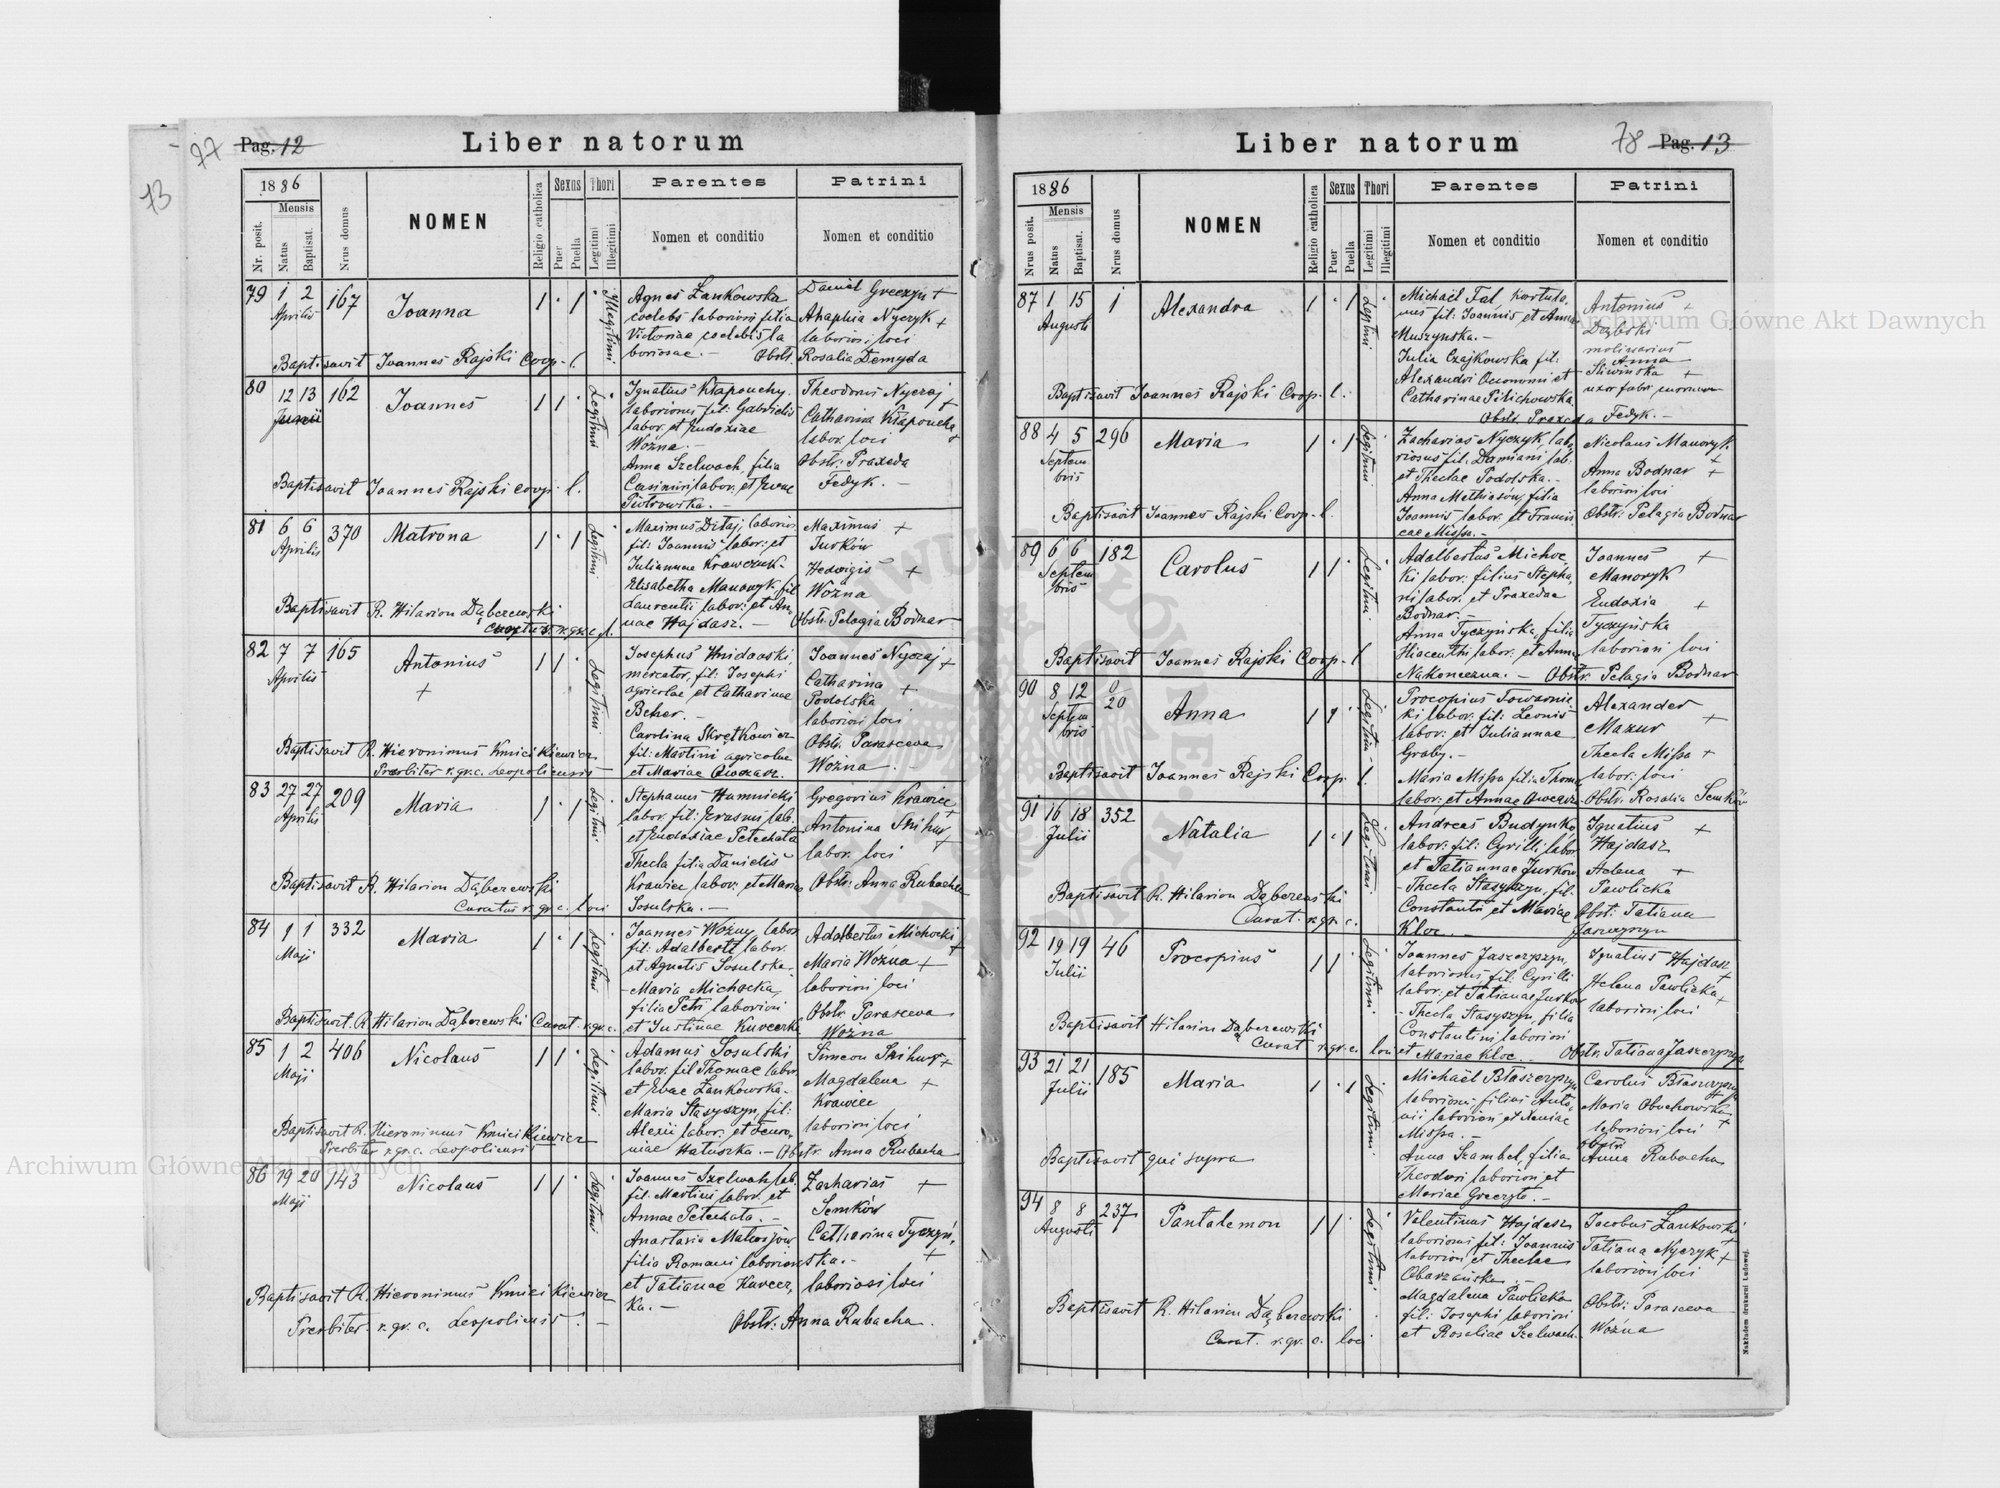 Pag. 12
77
13
Liber natorum
1886
Mensis
Nr. posit.
Natus
Baptisat.
Nrus domus
NOMEN
Religio catholica
Sexus
Puer
Puella
Thori
Legitimi
Illegitimi
Parentes
Nomen et conditio
Patrini
Nomen et conditio
79 1 2 167
Aprilis
Joanna
Illegitimi
Agnes Zankowska
coelebs laboriosi filia
Victoriae coelebis la
boriosae. —
Daniel Greczyn +
Ahaphia Nyczyk +
laboriosi loci
Obst. Rosalia Demyda
Baptisavit Joannes Rajski Coop. l.
80 12 13 162
Joannes
Legitimi
Ignatius Kłapouchy
laboriosus fil: Gabrielis
labor. et Eudoxiae
Woźna. —
Anna Szelwach, filia
Casimiri labor. et Evae
Piotrowska. —
Theodorus Nyczaj
Catharina Kłapoucha
labor. loci
Obstr: Praxeda
Fedyk. —
Baptisavit Joannes Rajski coop. l.
81 6 6 370
Aprilis
Matrona
Legitimi
Maximus Ditaj, laborios.
fil: Joannis labor: et
Juliannae Krawczuk
Elisabetha Manoryk fil
Laurentii labor: et An
nae Hajdasz. —
Maximus +
Jurków
Hedwigis +
Woźna
Obstr: Pelagia Bodnar
Baptisavit R. Hilarion Dąberewski
82 7 7 165
Aprilis
Antonius
+
Legitimi
Josephus Hnidowski
mercator, fil: Josephi
agricolae et Catharinae
Beher. —
Carolina Skrętkowicz
fil: Martini agricolae
et Mariae Owczarz.
Joannes Nyczaj +
Catharina +
Podolska
laboriosi loci
Obstr. Parasceva
Woźna. —
Baptisavit R. Hieronimus Kmicikiewicz
Presbiter r. gr. c. Leopoliensis
83 27 27 209
Aprilis
Maria
Legitimi
Stephanus Humnicki
labor. fil: Erasmi lab.
et Eudoxiae Petechata
Thecla filia Danielis
Krawiec labor. et Mariae
Sosulska. —
Gregorius Krawiec +
Antonina Snihur +
labor. loci
Obstr: Anna Rubacha
Baptisavit R. Hilarion Dąberewski
Curatus r. gr. c. loci
84 1 1 332
Maji
Maria
Legitimi
Joannes Woźny, labor
fil: Adalberti labor.
et Agnetis Sosulska.
- Maria Michocka,
filia Petri laboriosi
et Justinae Kurecrka
Adalbertus Michocki +
Maria Woźna +
laboriosi loci
Obstr. Parasceva
Woźna
Baptisavit. R. Hilarion Dąberewski Curat. r. gr. c.
85 1 2 406
Maji
Nicolaus
Legitimi
Adamus Sosulski
labor. fil Thomae labor
et Evae Zankowska. -
Maria Stasyszyn, fil:
Alexii labor. et Feuro,
niae Hatuszka. —
Simeon Snihur +
Magdalena +
Krawiec
laboriosi loci
Obstr. Anna Rubacha
Baptisavit R. Hieronimus Kmicikiewicz
Presbiter r. gr. c. Leopoliensis
86 19 20 143
Maji
Nicolaus
Legitimi
Joannes Szelwach lab.
fil: Martini labor. et
Annae Petechata. —
Anastasia Matwijów
filia Romani laboriosi
et Tatianae Kurecz,
ka. —
Zacharias +
Semków
Catharina Tyczyń,
ska. - +
laboriosi loci
Obstr: Anna Rubacha.
Baptisavit R. Hieronimus Kmicikiewicz
Presbiter. r. gr. c. Leopoliensis. —
Liber natorum
78
Pag. 13
1886
Mensis
Nrus posit.
Natus
Baptisat.
Nrus domus
NOMEN
Religio catholica
Sexus
Puer
Puella
Thori
Legitimi
Illegitimi
Parentes
Nomen et conditio
Patrini
Nomen et conditio
87 1 15 1
Augusti
Alexandra
Legitimi
Michaël Fal hortula,
nus fil: Joannis et Anna
Muszynska. —
Julia Czajkowska fil:
Alexandri Oeconomi et
Catharinae Pilichowska
Antonius +
Dąbski
molinarius
Anna
Śliwińska +
uxor fabri murarii
Obstr. Praxeda Fedyk. —
Baptisavit Joannes Rajski Coop. l.
88 4 5 296
Septem
bris
Maria
Legitimi
Zacharias Nyczyk, labo
riosus fil: Damiani lab.
et Theclae Podolska. —
Anna Mathiasów, filia
Joannis labor. et Francis
cae Missa. —
Nicolaus Manoryk
+
Anna Bodnar +
laboriosi loci
Obstr: Pelagia Bodnar
Baptisavit Joannes Rajski Coop. l.
89 6 6 182
Septem
bris
Carolus
Legitimi
Adalbertus Michoc,
ki labor: filius Stepha,
ni labor. et Praxedae
Bodnar. —
Anna Tyczyńska, filia
Hiacenthi labor. et Anna
Nakoneczna. —
Joannes +
Manoryk
Eudoxia +
Tyczyńska
laboriosi loci
Obstr. Pelagia Bodnar
Baptisavit Joannes Rajski Coop. l
90 8 12 0/20
Septem
bris
Anna
Legitimi
Procopius Towarnic
ki labor. fil: Leonis
labor: et Juliannae
Graby. —
Maria Missa filia Thoma
labor: et Annae Owczarz
Alexander
Mazur +
Thecla Missa +
labor: loci
Obstr. Rosalia Semków
Baptisavit Joannes Rajski Coop. l.
91 16 18 352
Julii
Natalia
Legitimi
Andreas Budynko
labor: fil: Cyrilli labor
et Tatiannae Jurków
- Thecla Stasyszyn, fil.
Constantii et Mariae
Kloc. —
Ignatius +
Hajdasz
Helena +
Pawlicka
Obst: Tatiana
Jaszczyszyn
Baptisavit R. Hilarion Dąberewski
Curat. r. gr. c.
92 19 19 46
Julii
Procopius
Legitimi
Joannes Jaszczyszyn,
laboriosus fil: Cyrilli
labor. et Tatianae Jurków
- Thecla Stasyszyn, filia
Constantini laboriosi
et Mariae Kloc. —
Ignatius Hajdasz +
Helena Pawlicka +
laboriosi loci
Obstr. Tatiana Jaszczyszyn
Baptisavit Hilarion Dąberewski
Curat r. gr. c. loci
93 21 21 185
Julii
Maria
Legitimi
Michaël Błaszczyszyn
laboriosus filius Anto,
nii laboriosi et Xeniae
Missa. —
Anna Szambel, filia
Theodori laboriosi et
Mariae Greczyło. —
Carolus Błaszczyszyn
Maria Obuchowska +
laboriosi loci
Obstri
Anna Rubacha
Baptisavit qui supra
94 8 8 237
Augusti
Pantalemon
Legitimi
Valentinus Hajdasz
laboriosus fil: Joannis
laboriosi, et Theclae
Obarzańska. —
Magdalena Pawlicka
fil: Josephi laboriosi
et Rosaliae Szelwach.
Jacobus Zankowski
+
Tatiana Nyczyk +
laboriosi loci
Obstr: Parasceva
Woźna
Baptisavit R. Hilarion Dąberewski
Curat. r. gr. c. loci
Nakładem drukarni Ludowej.
Archiwum Główne Akt Dawnych
Archiwum Główne Akt Dawnych